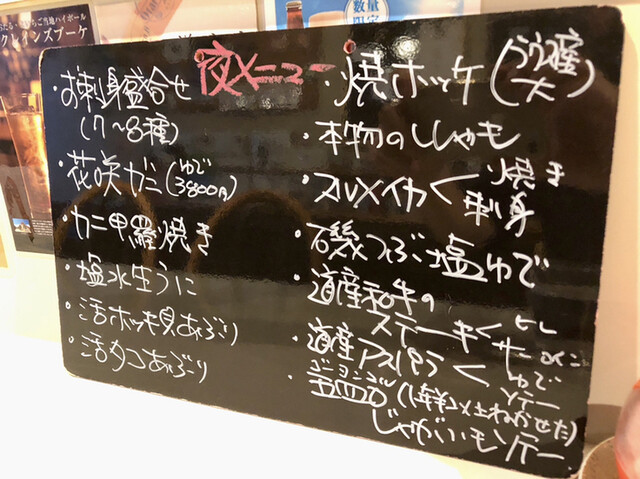 夜メニュー
・お刺身盛合せ
(7〜8種)
・花咲ガニ(ゆで
3800円)
・カニ甲羅焼き
・塩水生うに
・活ホッキ貝あぶり
・活タコあぶり
・焼ホッケ(らうす産
大)
・本物のししゃも
・スルメイカ<焼き
刺身
・磯つぶ塩ゆで
・道産和牛の
ステーキ<ヒレ
サーロイン
・道産アスパラ<ゆで
ソテー
・ゴーヨンゴー
五四五(1年以上ねかせた)
じゃがいもソテー
たる・
ご当地ハイボール
クレインズブーケ
数量
限定